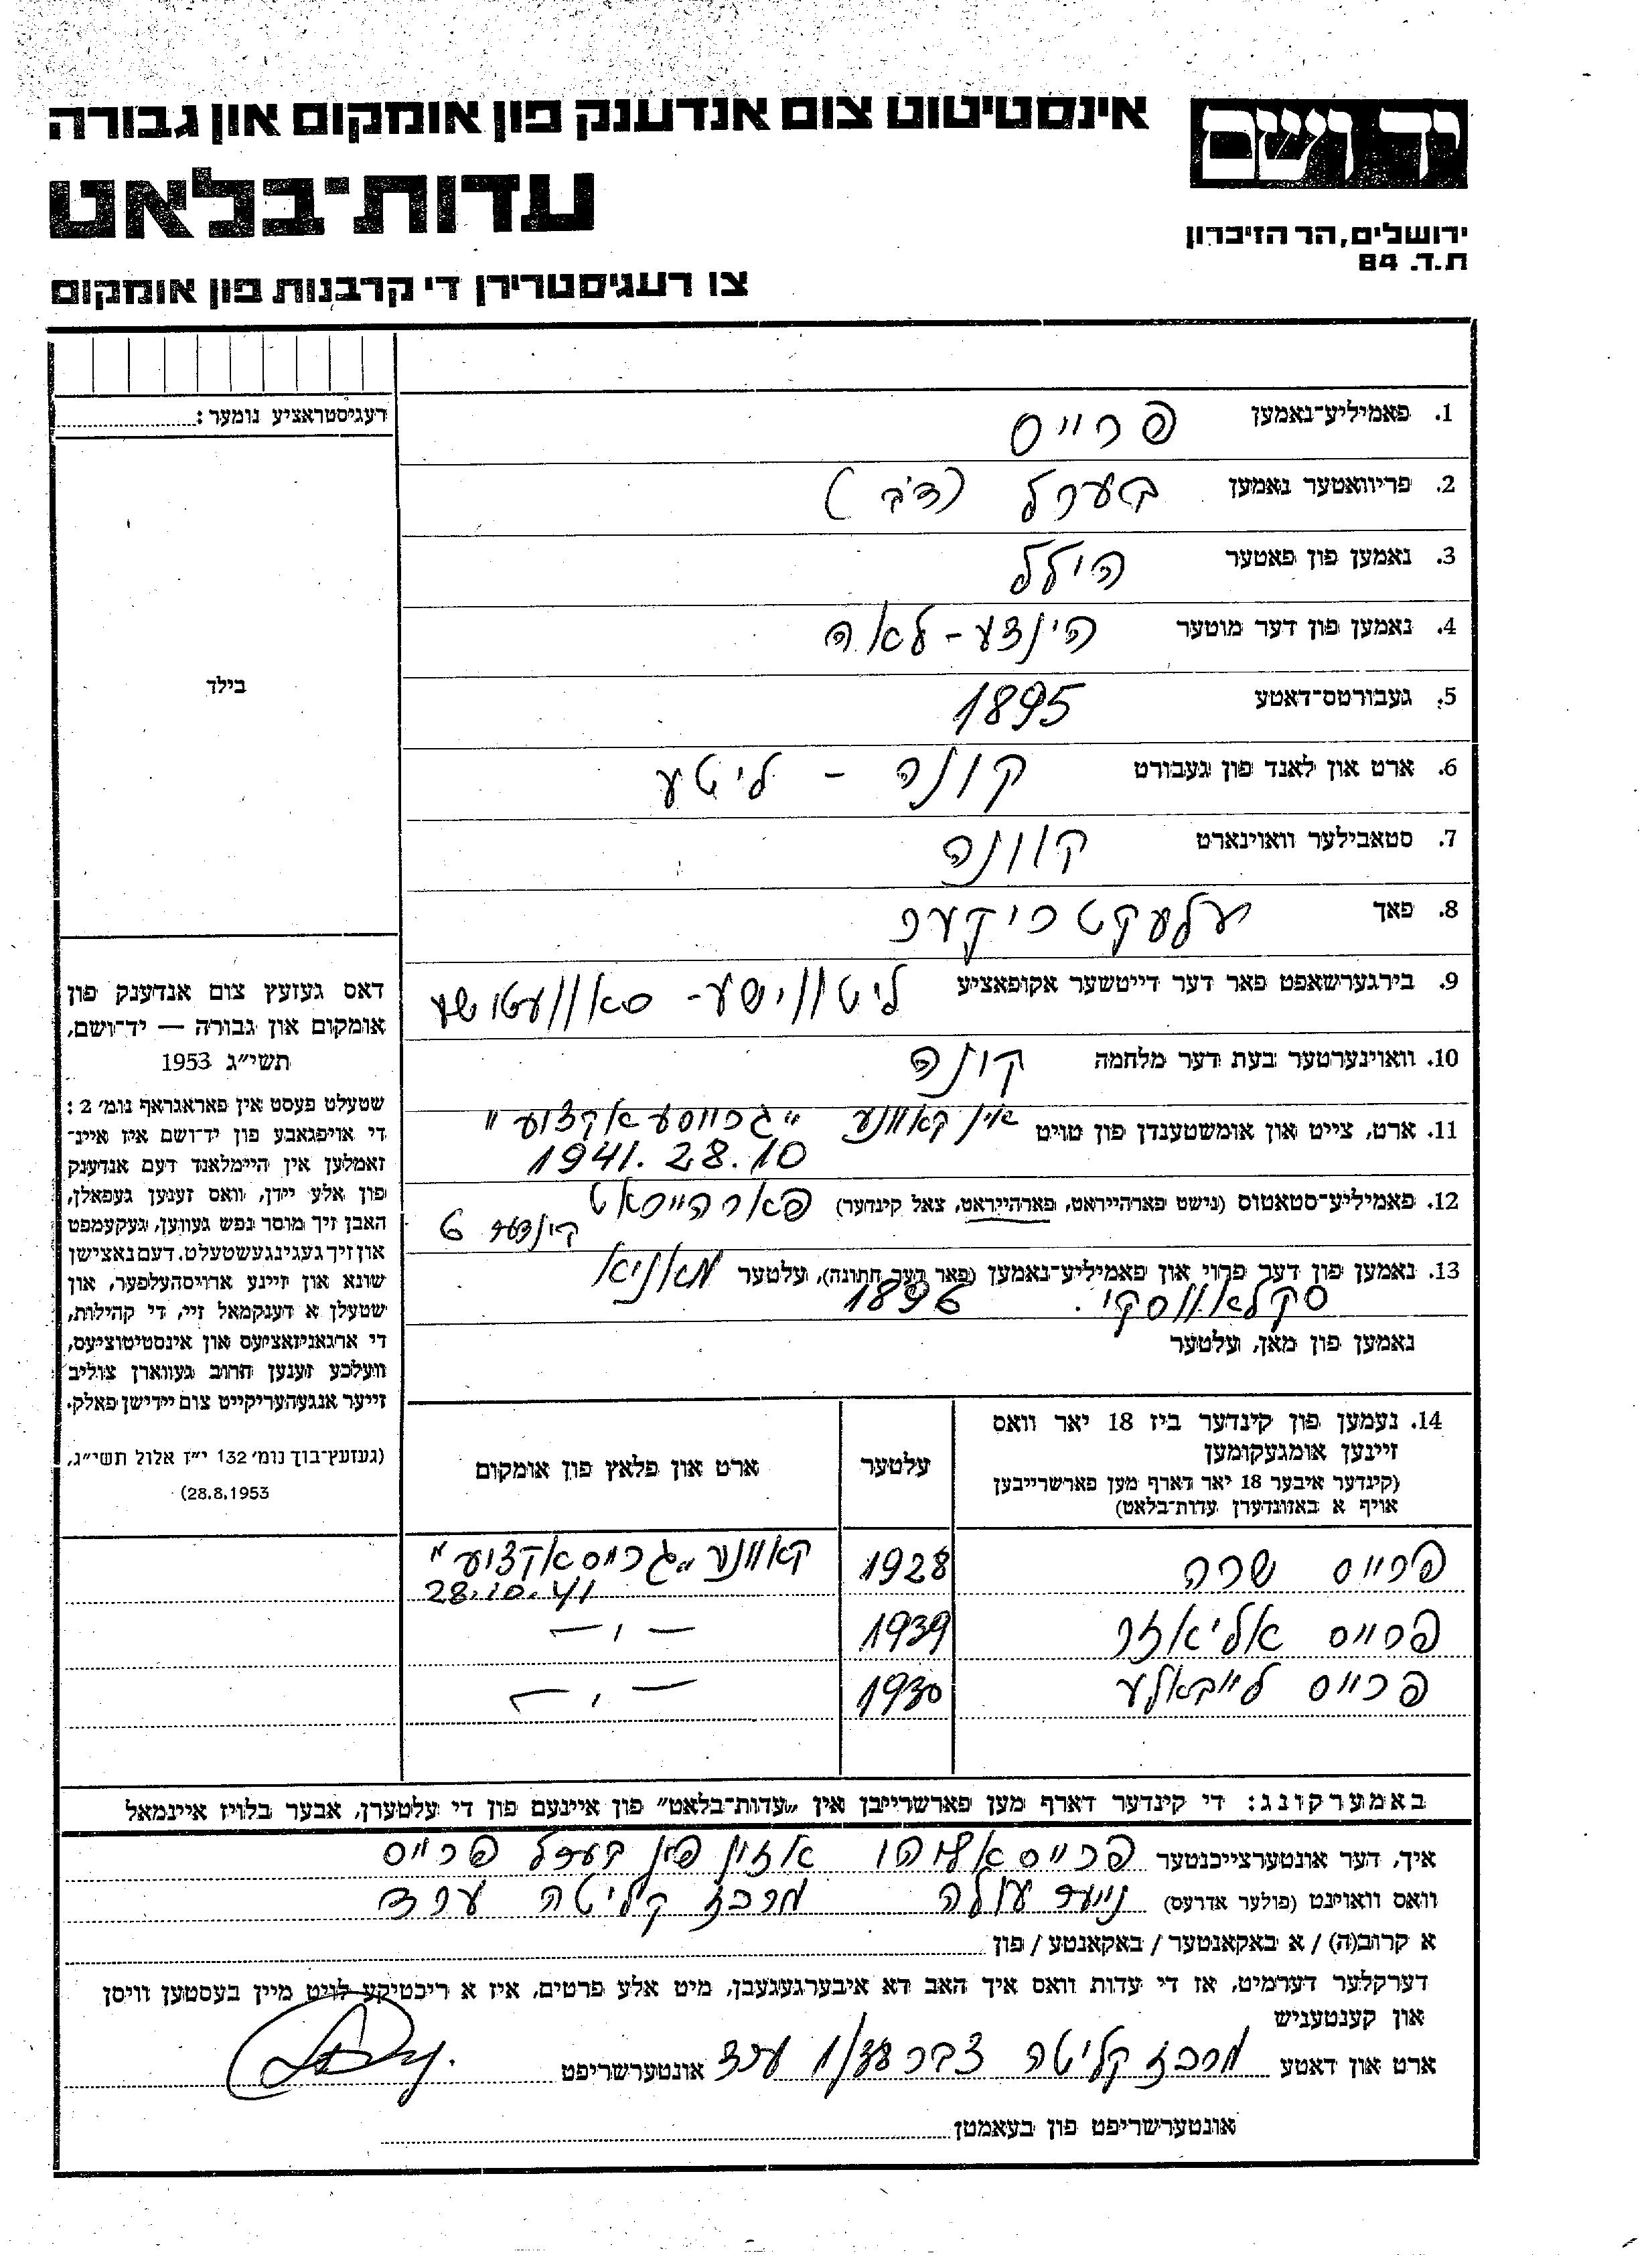 אינסטיטוט צום אנדענק פון אומקום און גבורה
יד ושם
עדות־בלאט
ירושלים, הר הזיכרון
ת.ד. 84
צו רעגיסטרירן די קרבנות פון אומקום
רעגיסטראציע נומער:
1. פאמיליע־נאמען פרייס
2. פריוואטער נאמען בערל (דב)
3. נאמען פון פאטער הילל
4. נאמען פון דער מוטער הינדע - לאה
בילד
5. געבורטס־דאטע 1895
6. ארט און לאנד פון געבורט קונה - ליטע
7. סטאבילער וואוינארט קוונה
8. פאך עלעקטריקער
9. בירגערשאפט פאר דער דייטשער אקופאציע ליטווישע - סאוועטישע
10. וואוינערטער בעת דער מלחמה קונה
11. ארט, צייט און אומשטענדן פון טויט אין קאוונע "גרויסע אקציע"
1941. 28.10
12. פאמיליע־סטאטוס (נישט פארהייראט, פארהייראט, צאל קינדער) פארהייראט
קינדער 6
13. נאמען פון דער פרוי און פאמיליע־נאמען (פאר דער חתונה), עלטער מאניא
סקלאווסקי. 1896
נאמען פון מאן, עלטער
דאס געזעץ צום אנדענק פון
אומקום און גבורה — יד־ושם,
תשי״ג 1953
שטעלט פעסט אין פאראגראף נומ׳ 2:
די אויפגאבע פון יד־ושם איז איינ־
זאמלען אין היימלאנד דעם אנדענק
פון אלע יידן, וואס זענען געפאלן,
האבן זיך מוסר נפש געווען, געקעמפט
און זיך געגינגעשטעלט דעם נאצישן
שונא און זיינע ארויסהעלפער, און
שטעלן א דענקמאל זיי, די קהילות,
די ארגאניזאציעס און אינסטיטוציעס,
וועלכע זענען חרוב געווארן צוליב
זייער אנגעהעריקייט צום יידישן פאלק.
(געזעץ־בוך נומ׳ 132 י״ז אלול תשי״ג,
28.8.1953)
14. נעמען פון קינדער ביז 18 יאר וואס
זיינען אומגעקומען
(קינדער איבער 18 יאר דארף מען פארשרייבן
אויף א באזונדערן עדות־בלאט)
עלטער
ארט און פלאץ פון אומקום
פרייס שרה 1928 קאוונע "גרויס אקציע"
28.10.41
פרייס אליאזר 1939 — ״ —
פרייס לייבאלע 1930 — ״ —
באמערקונג: די קינדער דארף מען פארשרייבן אין „עדות־בלאט״ פון איינעם פון די עלטערן, אבער בלויז איינמאל
איך, דער אונטערצייכנטער פרייס אליהו א זון פון בערל פרייס
וואס וואוינט (פולער אדרעס) נייער עולה מרכז קליטה ערד
א קרוב(ה) / א באקאנטער / באקאנטע / פון
דערקלער דערמיט, אז די עדות וואס איך האב דא איבערגעגעבן, מיט אלע פרטים, איז א ריכטיקע לויט מיין בעסטען וויסן
און קענטעניש
ארט און דאטע מרכז קליטה ערד אונטערשריפט
אונטערשריפט פון בעאמטן